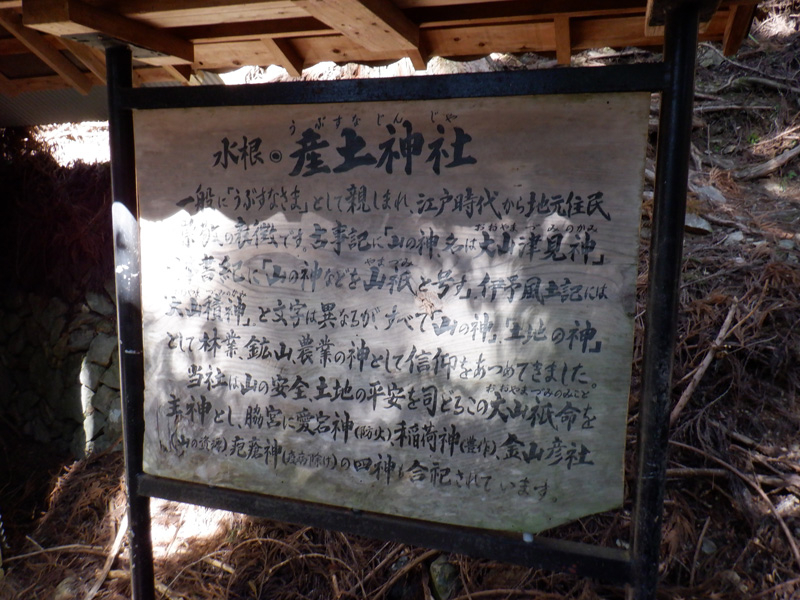 うぶすなじんじや
水根◉産土神社
一般に「うぶすなさま」として親しまれ、江戸時代から地元住民
の象徴です。古事記に「山の神、名は大山津見神」
おおやまつみのかみ
書紀に「山の神などを山祇と号す」、伊予風土記には
やまつみ
「大山積神」、と文字は異なるが、すべて「山の神」「土地の神」
として林業、鉱山、農業の神として信仰をあつめてきました。
当社は山の安全、土地の平安を司どるこの大山祇命を
おおやまづみのみこと
主神とし、脇宮に愛宕神(防火)、稲荷神(豊作)、金山彦社
(山の資源)、疱瘡神(疫病除け)の四神も合祀されています。